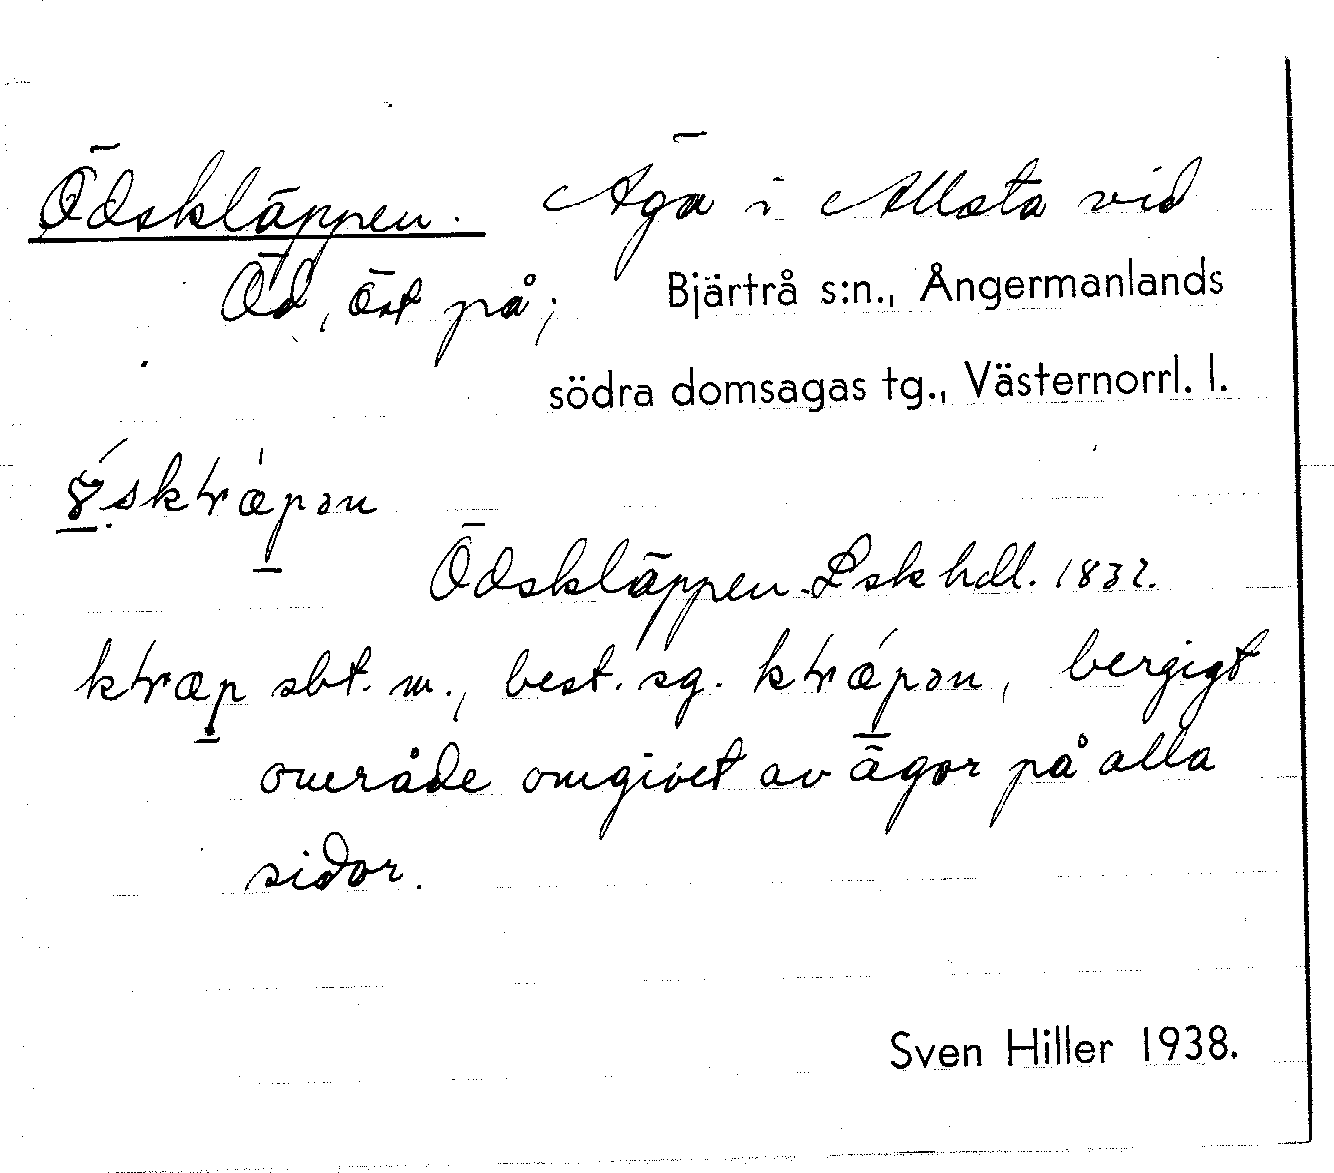 Ödskläppen. Äga i Allsta vid
Öd, öst på; Bjärtrå s:n., Ångermanlands
södra domsagas tg., Västernorrl. l.
Ödskläppen. Lsk hdl. 1832.
sbt. m., best. sg. bergigt
område omgivet av ägor på alla
sidor.
Sven Hiller 1938.